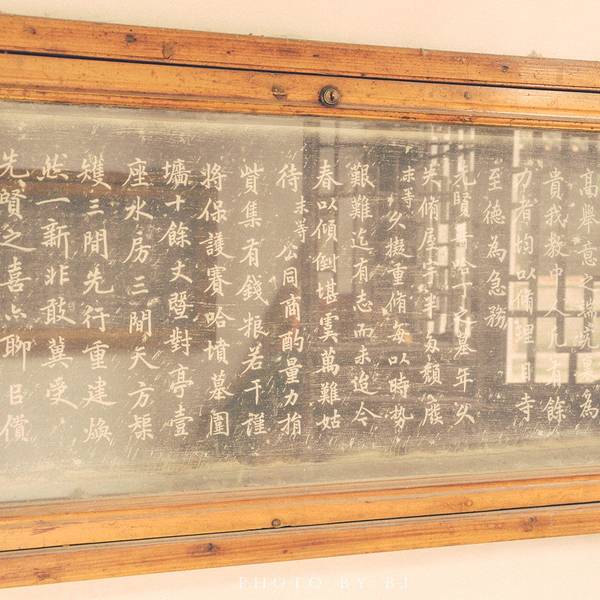 高舉意之端
貴我教中人凡有餘
力者均以脩理
至德為急務
先賢賽哈丁之墓年久
失脩屋宇半為頹廢
未等久擬重脩每以時勢
艱難迄有志而未迨今
春以傾倒堪虞萬難姑
待未等公同商酌量力捐
貲集有錢根若干謹
將保護賽哈墳墓圍
壙十餘丈暨對亭壹
座水房三間矢方槼
矱三間先行重建煥
然一新非敢冀受
先賢之喜点聊以償
PHOTO BY BJ